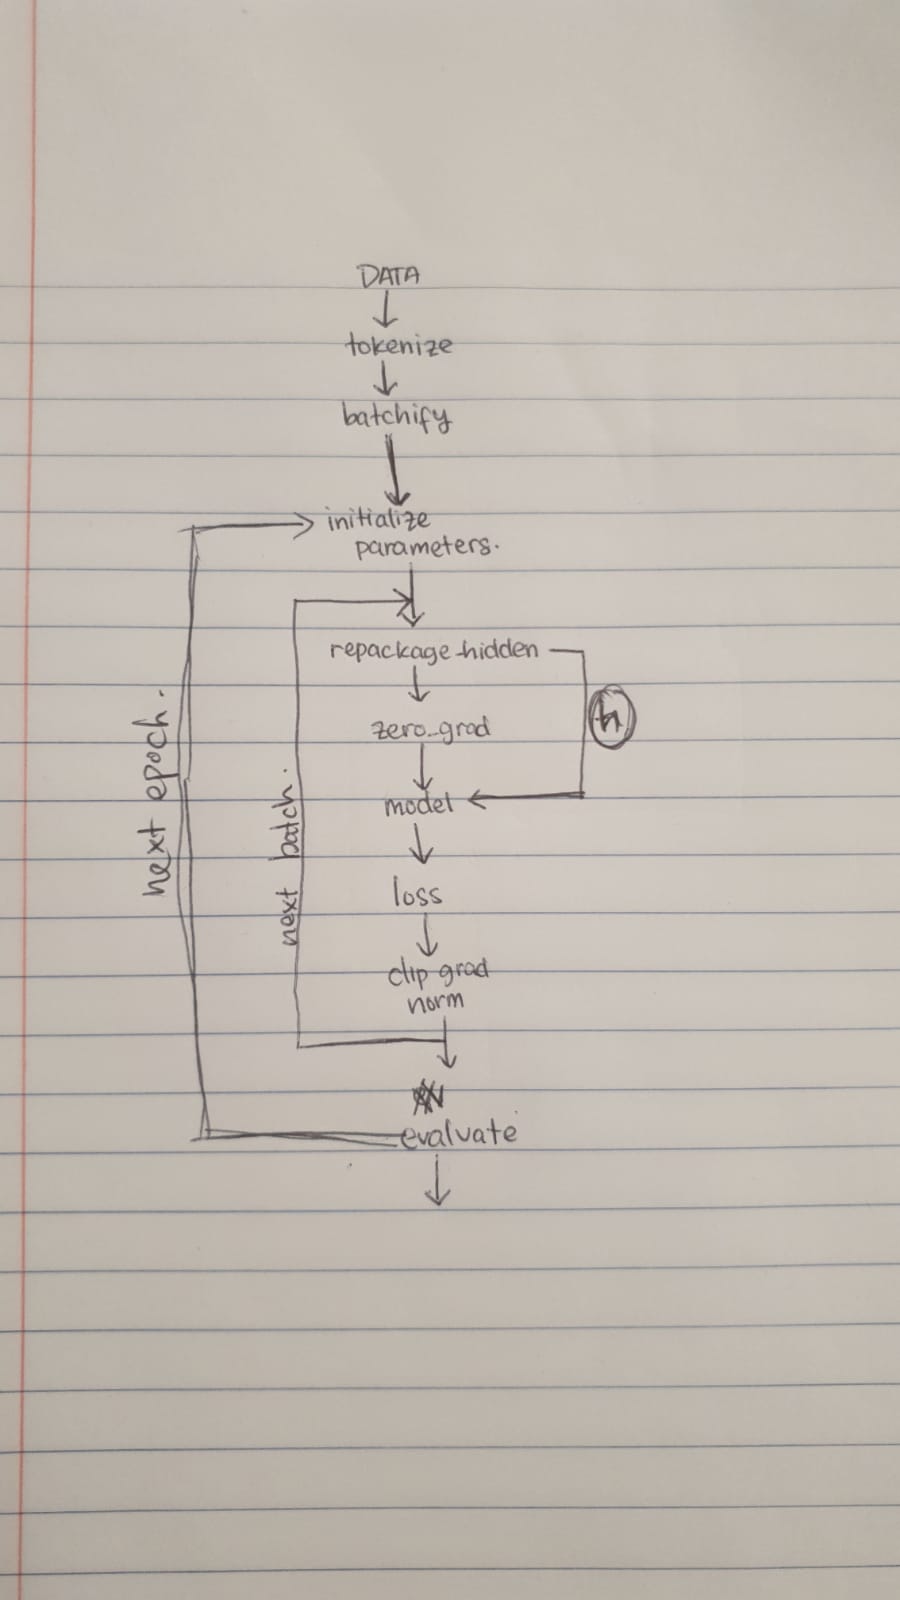 DATA
tokenize
batchify
initialize
parameters.
repackage-hidden
zero-grad
h
model
loss
clip grad
norm
evaluate
next batch.
next epoch.